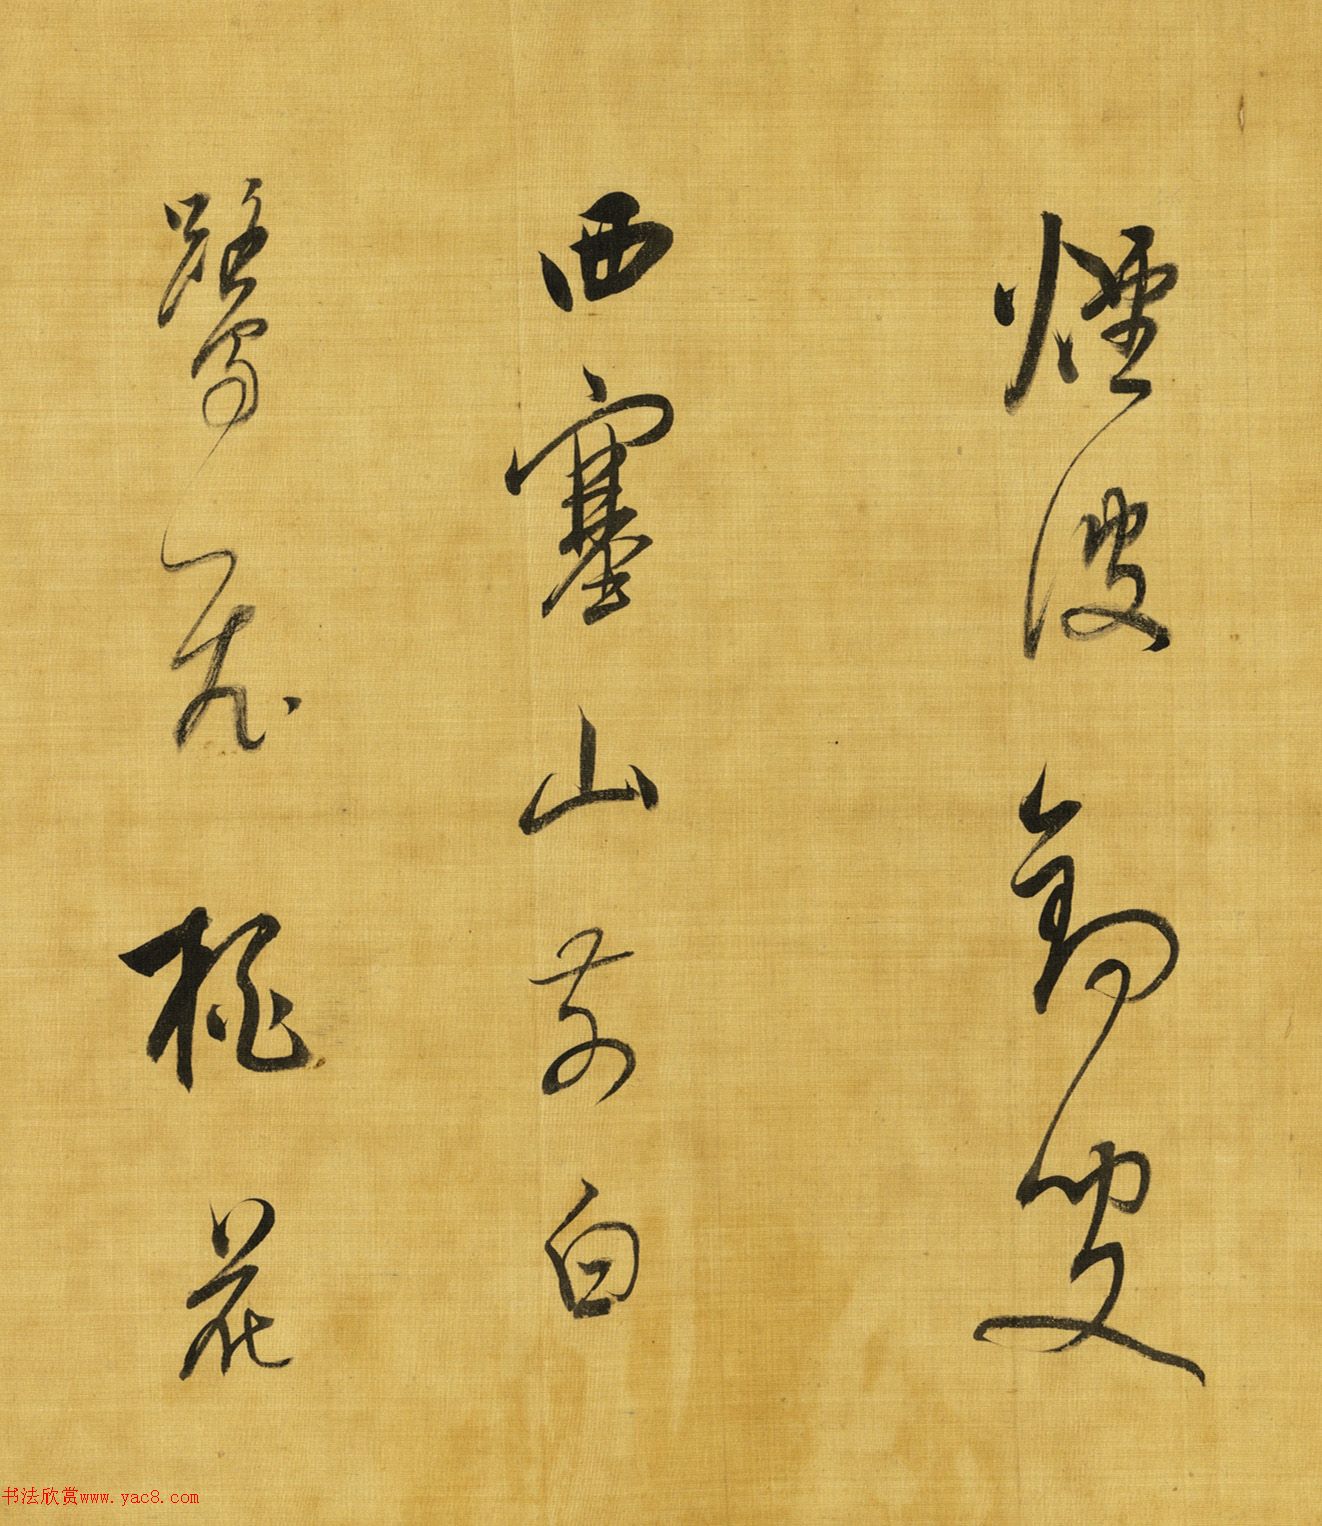 煙波釣叟
西塞山前白
鷺飛桃花
书法欣赏www.yac8.com